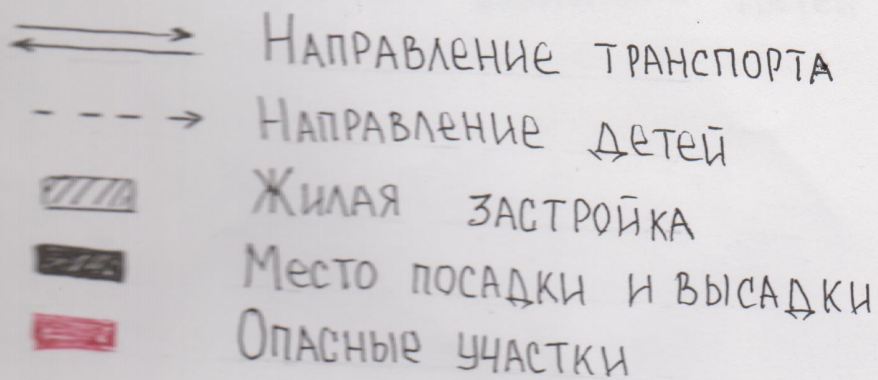 Направление транспорта
Направление детей
Жилая застройка
Место посадки и высадки
Опасные участки